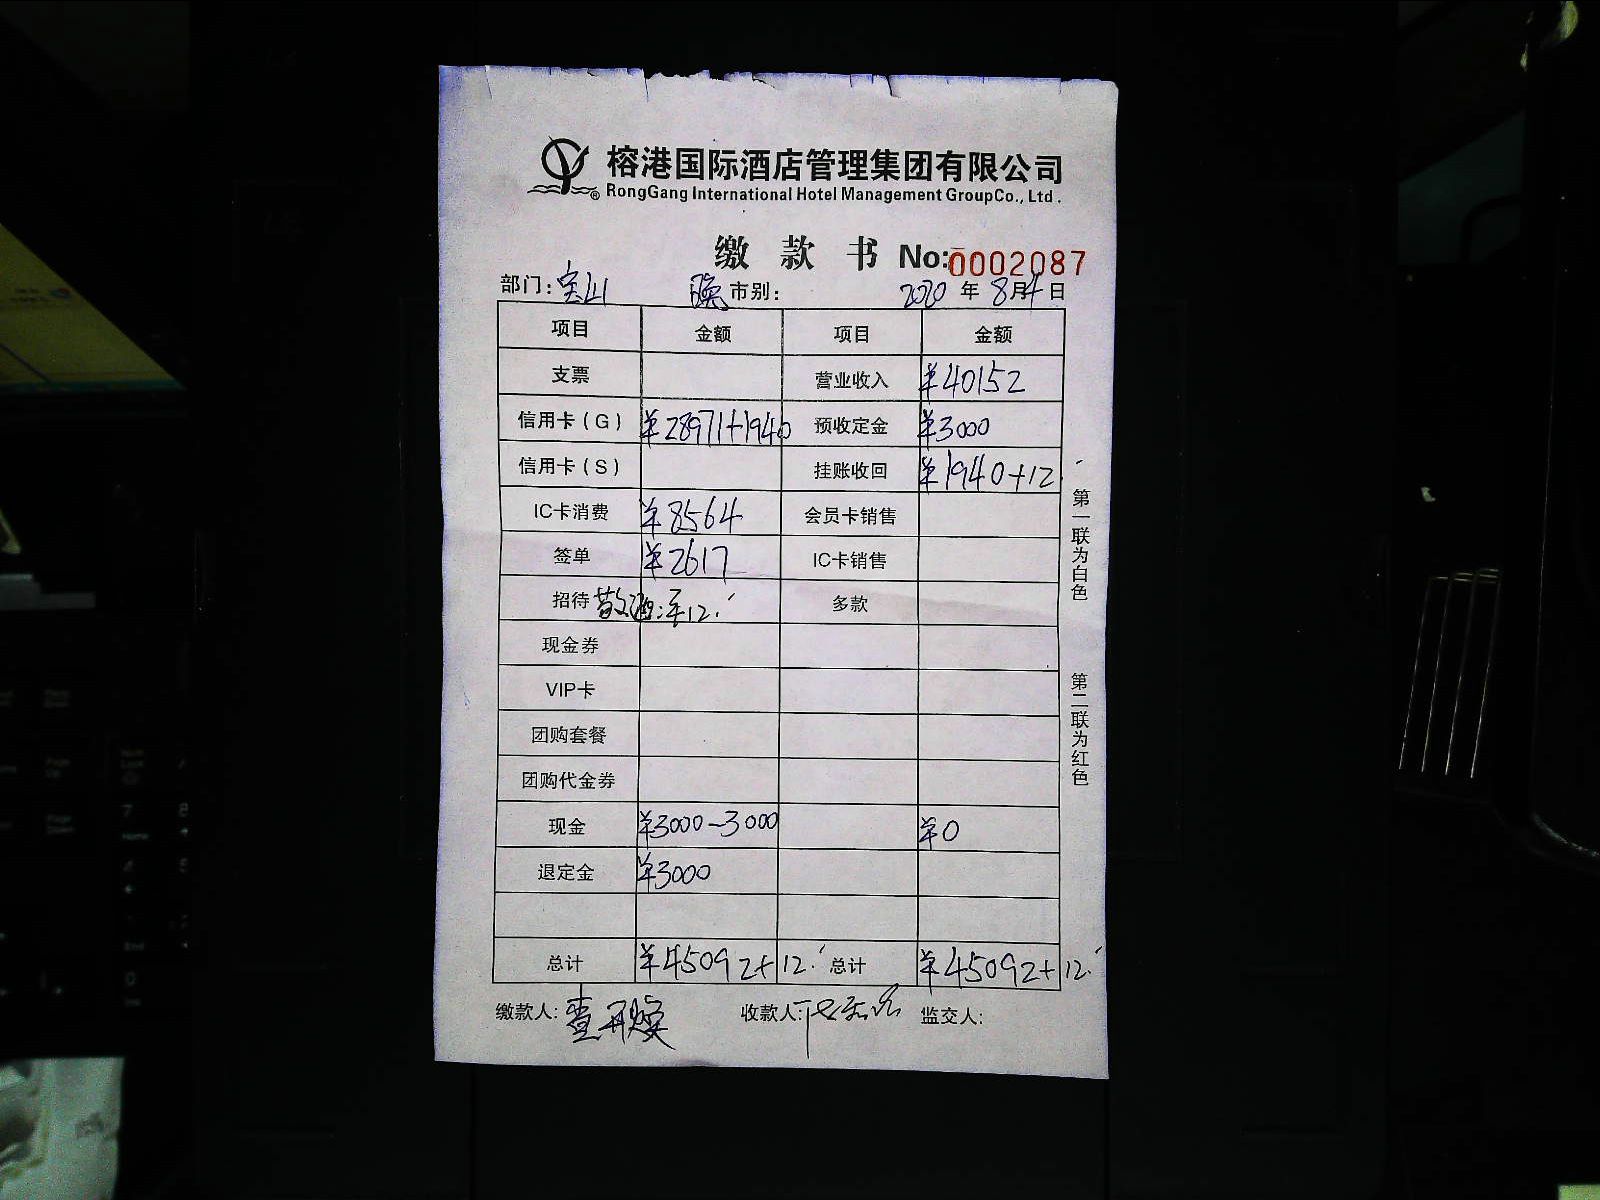 榕港国际酒店管理集团有限公司
® RongGang International Hotel Management GroupCo., Ltd.
缴款书 No:0002087
部门:宝山 晚市别: 2020年8月4日
项目 金额 项目 金额
支票 营业收入 ¥40152
信用卡(G) ¥28971+1940 预收定金 ¥3000
信用卡(S) 挂账收回 ¥1940+12.
IC卡消费 ¥8564 会员卡销售
签单 ¥2617 IC卡销售
招待 散酒:¥12. 多款
现金券
VIP卡
团购套餐
团购代金券
现金 ¥3000-3000 ¥0
退定金 ¥3000
总计 ¥45092+12. 总计 ¥45092+12.
缴款人: 收款人: 监交人:
第一联为白色
第二联为红色